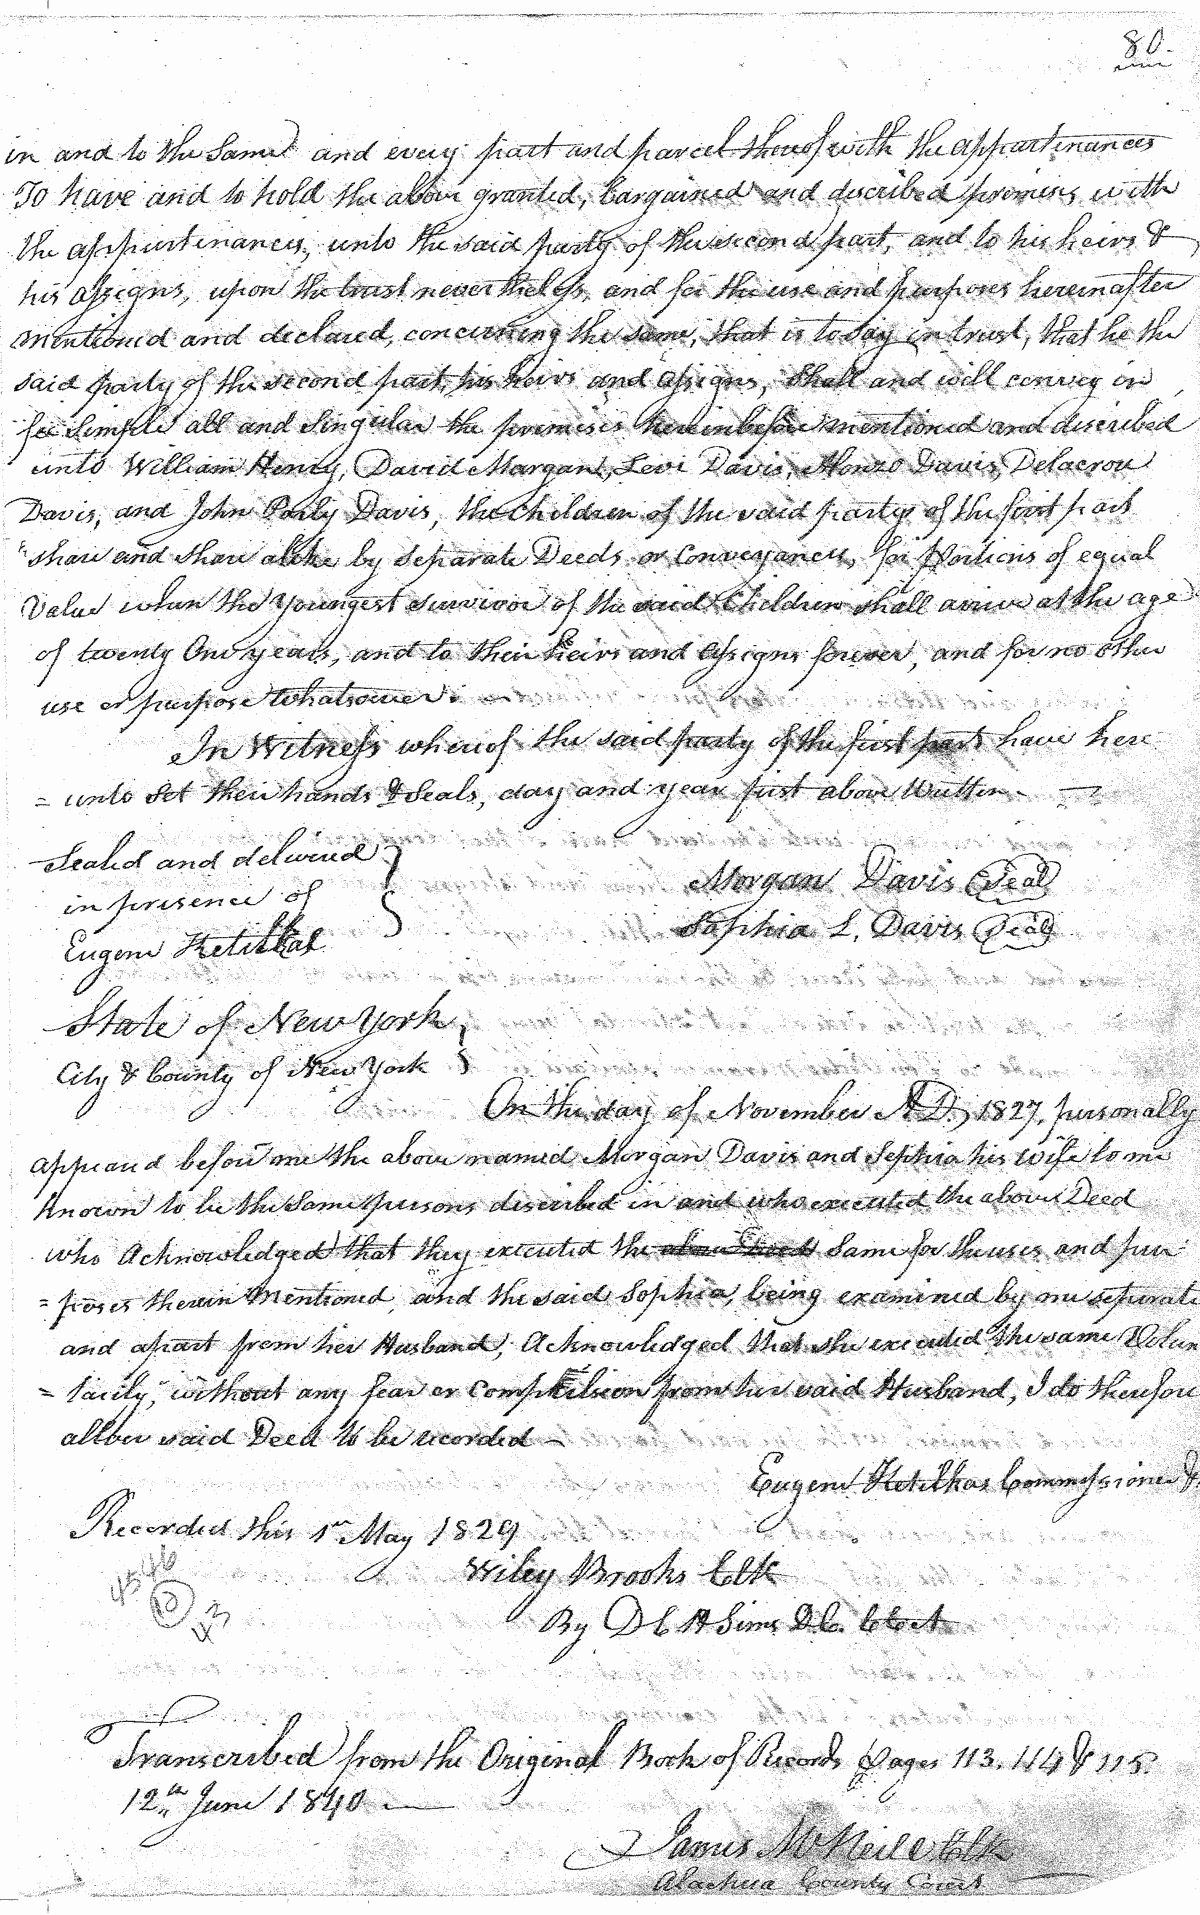 80.
in and to the Same and every part and parcel thereof with the appartinances
To have and to hold the above granted, bargained and described premises with
the appurtinances, unto the said party of the second part, and to his heirs &
his assigns, upon the trust nevertheless, and for the use and purposes hereinafter
mentioned and declared, concerning the same, that is to say in trust, that he the
said party of the second part, his heirs and assigns, Shall and will convey in
fee Simple all and Singular the premises hereinbefore mentioned and discribed
unto William Henry, David Morgan, Levi Davis, Alonzo Davis, Delacrou
Davis, and John Davis, the Children of the said party of the first part
share and share alike by seperate Deeds or Conveyances, for Portions of equal
Value when the Youngest survivor of the said Children shall arrive at the age
of twenty One years, and to their heirs and assigns forever, and for no other
use or purpose whatsoever.
In Witness whereof the said party of the first part have here
= unto Set their hands & Seals, day and year first above Written.
Sealed and delivered
in presence of
Eugene
Morgan Davis (Seal)
Sophia L. Davis (Seal)
State of New York
City & County of New York
On the day of November A.D. 1827. personally
appeared before me the above named Morgan Davis and Sophia his wife to me
Known to be the Same persons discribed in and who executed the above Deed
who Acknowledged that they executed the above Deed Same for the uses and pur
= poses therein Mentioned, and the said Sophia, being examined by me seperate
and apart from her Husband, Acknowledged that she executed the same Volun
= tarily, without any fear or Compulsion from her said Husband, I do therefore
allow said Deed to be recorded –
Eugene Commissioner &.
Recorded this 1st May 1829
45 46
43
Wiley Brooks Clk
By D C H Sims D C.
Transcribed from the Original Book of Records Pages 113. 114 & 115.
12th June 1840
James McNeil Clk
Alachua County Court